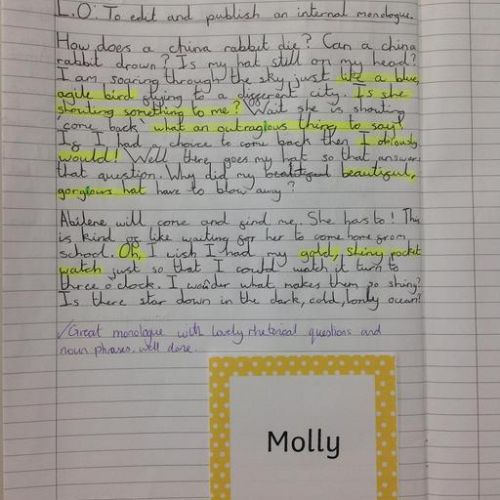 L.O: To edit and publish an internal monologue.
How does a china rabbit die? Can a china
rabbit drown? Is my hat still on my head?
I am soaring through the sky just like a blue,
agile bird flying to a different city. Is she
shouting something to me? Wait she is shouting
'come back' what an outragious thing to say!
If I had a choice to come back then I obviously
would! Well there goes my hat so that answers
that question. Why did my beautiful beautiful,
gorgeous hat have to blow away?
Abilene will come and find me. She has to! This
is kind of like waiting for her to come home from
school. Oh, I wish I had my gold, shiny pocket
watch just so that I could watch it turn to
three o'clock. I wonder what makes them so shiny?
Is there star down in the dark, cold, lonly ocean?
✓Great monologue with lovely rhetorical questions and
noun phrases. well done.
Molly